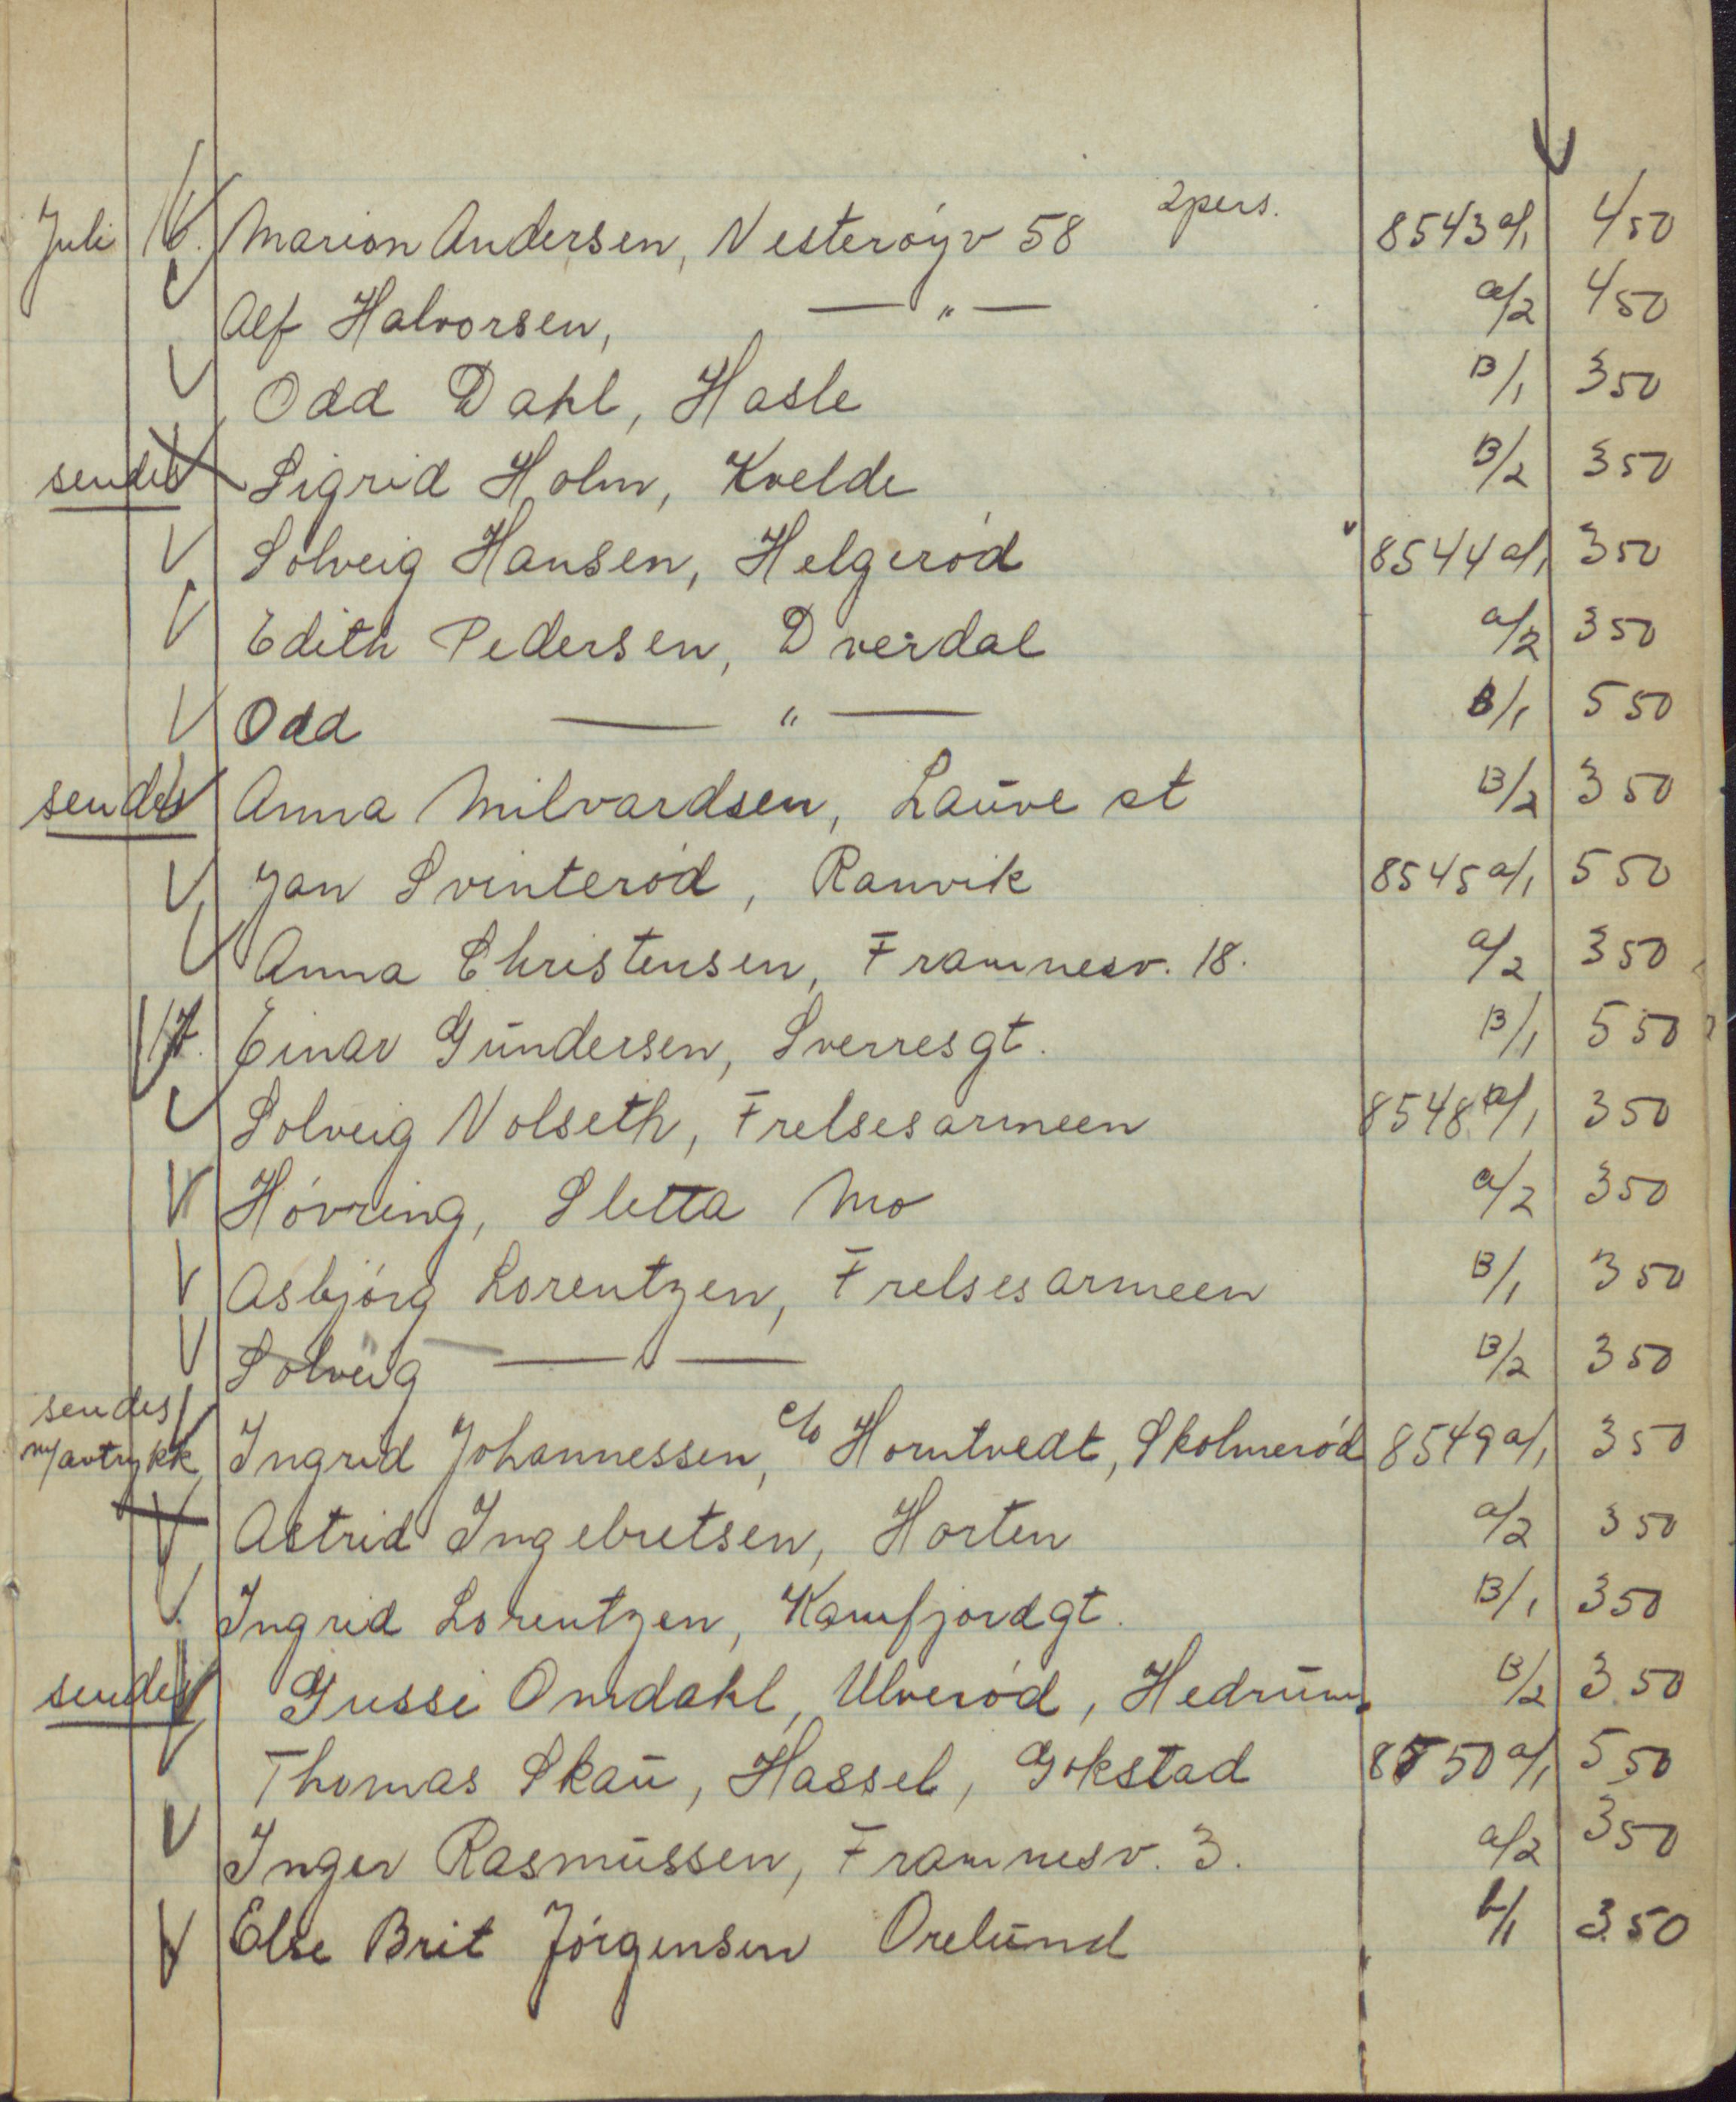 Juli 16. Marion Andersen, Nesteröyv 58 2pers. 8543 a/1 4 50
Alf Halvorsen, — " — a/2 4 50
Odd Dahl, Hasle B/1 3 50
sendes Sigrid Holm, Kvelde B/2 3 50
Solveig Hansen, Helgeröd 8544 a/1 3 50
Edith Pedersen, Dverdal a/2 3 50
Odd — " — B/1 5 50
sendes Anna Milvardsen, Lauve st B/2 3 50
Jan Svinteröd, Ranvik 8545 a/1 5 50
Anna Christensen, Framnesv. 18. a/2 3 50
17. Einar Gundersen, Sverresgt. B/1 5 50
Solveig Volseth, Frelsesarmeen 8548 a/1 3 50
Hövring, Sletta Mo a/2 3 50
Asbjörg Lorentzen, Frelsesarmeen B/1 3 50
Solveig — " — B/2 3 50
sendes
m/avtrykk Ingrid Johannessen, c/o Horntvedt, Skolmeröd 8549 a/1 3 50
Astrid Ingebretsen, Horten a/2 3 50
Ingrid Lorentzen, Kamfjordgt. B/1 3 50
sendes Gussi Omdahl, Ulveröd, Hedrum. B/2 3.50
Thomas Skau, Hassel, Gokstad 8550 a/1 5 50
Inger Rasmussen, Framnesv. 3. a/2 3 50
Else Brit Jörgensen Orelund b/1 3.50